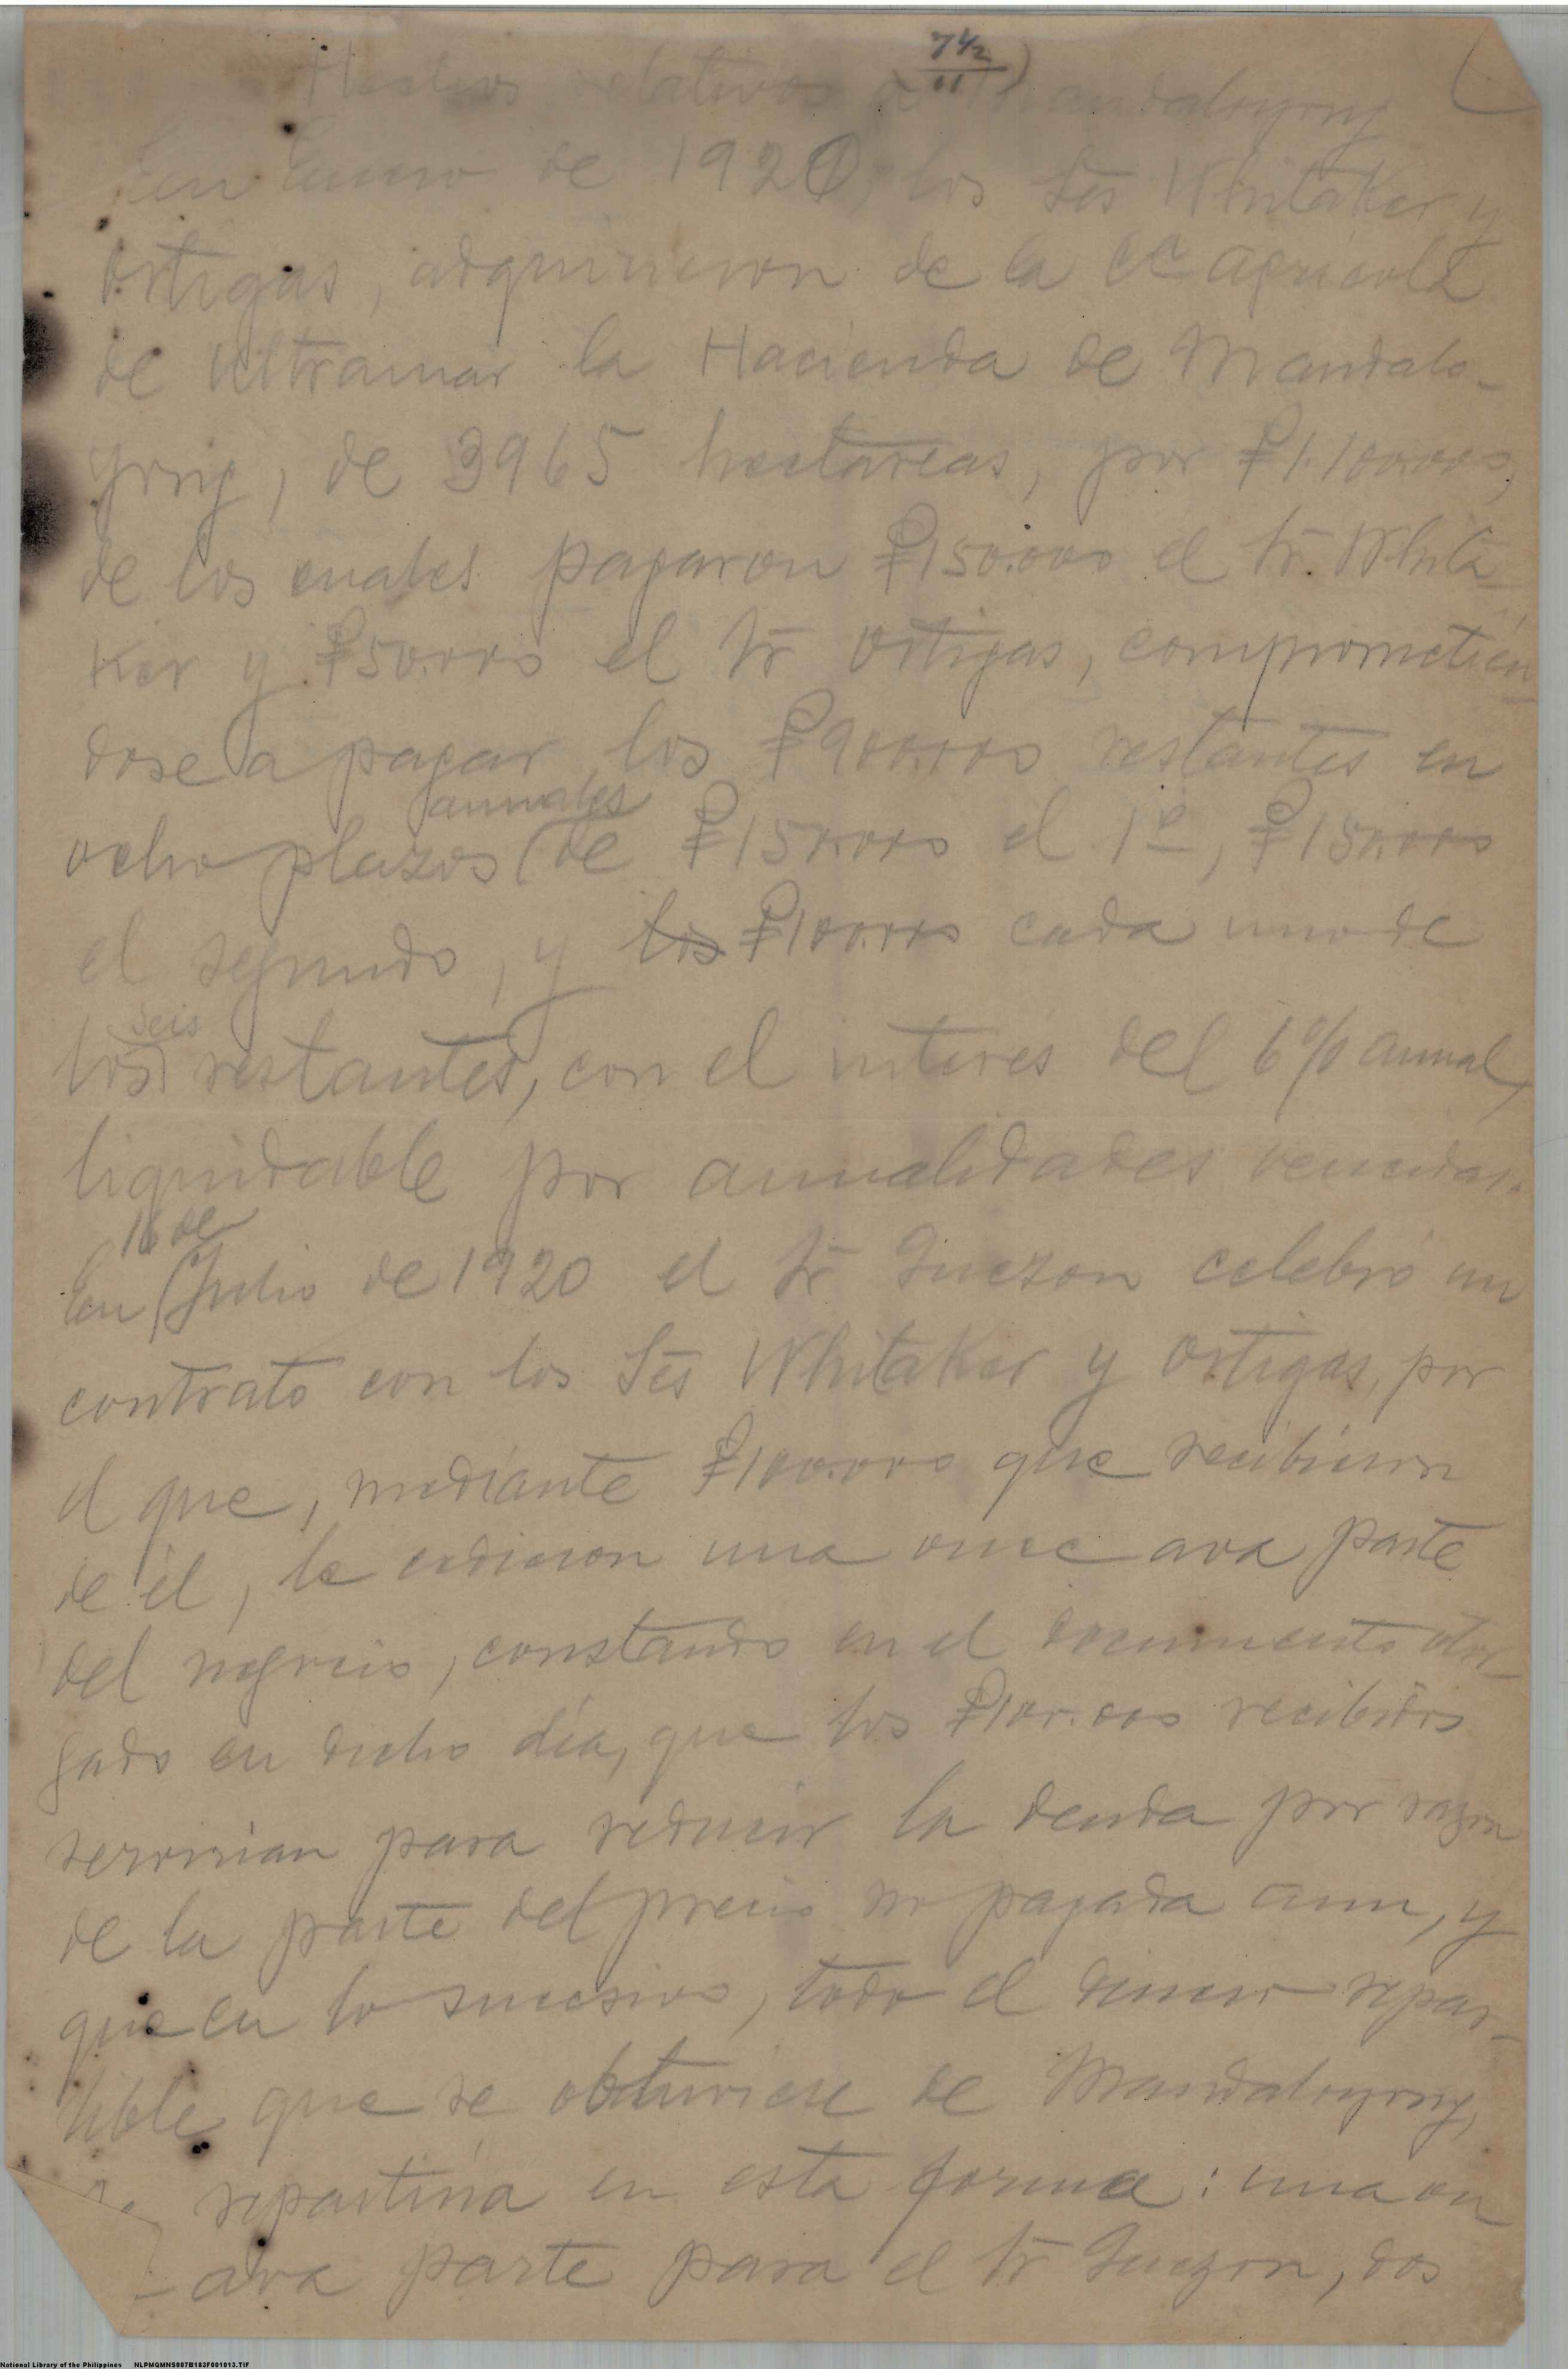 7 1/2
11)
Hechos relativos a Mandaloyong
En Enero de 1920, los Sres Whitaker y
Ortigas, adquirieron de la Cª Agricola
de Ultramar la Hacienda de Mandalo-
yong, de 3965 hectareas, por ₱1.100.000,
de los cuales pagaron ₱150.000 el Sr. Whita
Ker y ₱50.000 el Sr Ortigas, comprometién
dose a pagar los ₱900.000 restantes en
anuales
ocho plazos (de ₱150.000 el 1º, ₱150.000
el segundo, y los ₱100.000 cada uno de
seis
los restantes, con el interés del 6% anual,
liquidable por anualidades vencidas.
16 de
En Julio de 1920 el Sr Quezon celebró un
contrato con los Sres Whitaker y Ortigas, por
el que, mediante ₱100.000 que recibieron
de él, le cedieron una once ava parte
del negocio, constando en el documento otor
gado en dicho día, que los ₱100.000 recibidos
servirian para reducir la deuda por razon
de la parte del precio no pagada aun, y
que en lo sucesivo, todo el dinero repar-
tible que se obtuviere de Mandaloyong,
se repartiría en esta forma: una on
-ava parte para el Sr Quezon, dos
National Library of the Philippines NLPMQMNS007B183F001013.TIF